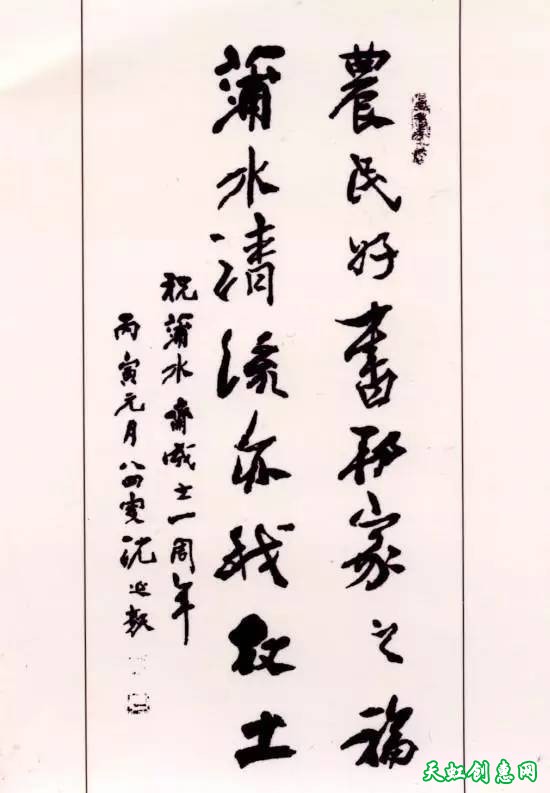 農民好書邦家之福
蒲水清漪亦我故土
祝蒲水齋成立一周年
丙寅元月八四叟沈延毅
天虹创意网